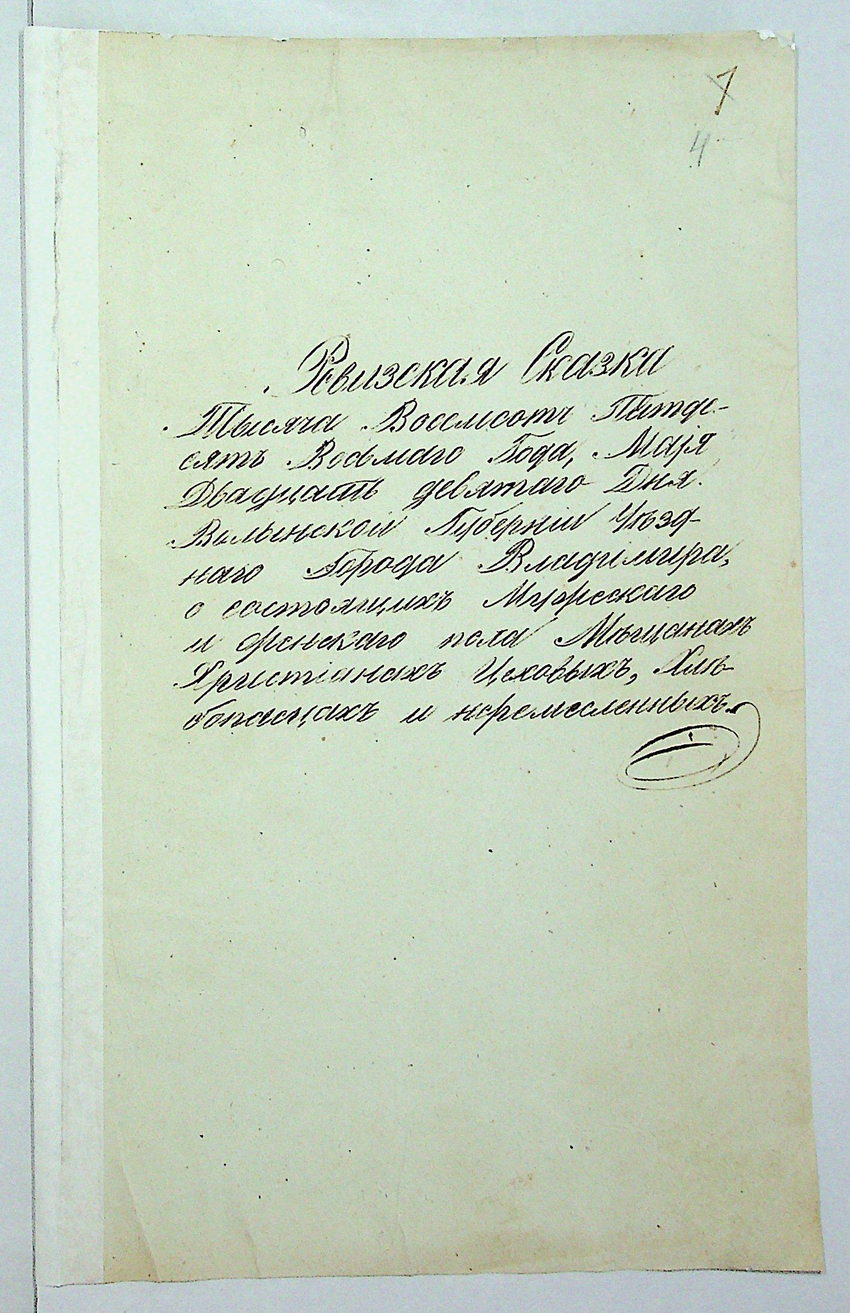 1
4
Ревизская Сказка
Тысяча Восемсотъ Пятде-
сятъ Восьмаго Года, Маія
Двадцать девятаго Дня.
Волынской Губерніи Уѣзд-
наго Города Владимира,
о состоящихъ Мужескаго
и женскаго пола Мѣщанахъ
Христіанахъ Цеховыхъ, Хлѣ-
бопасцахъ и неремесленныхъ.